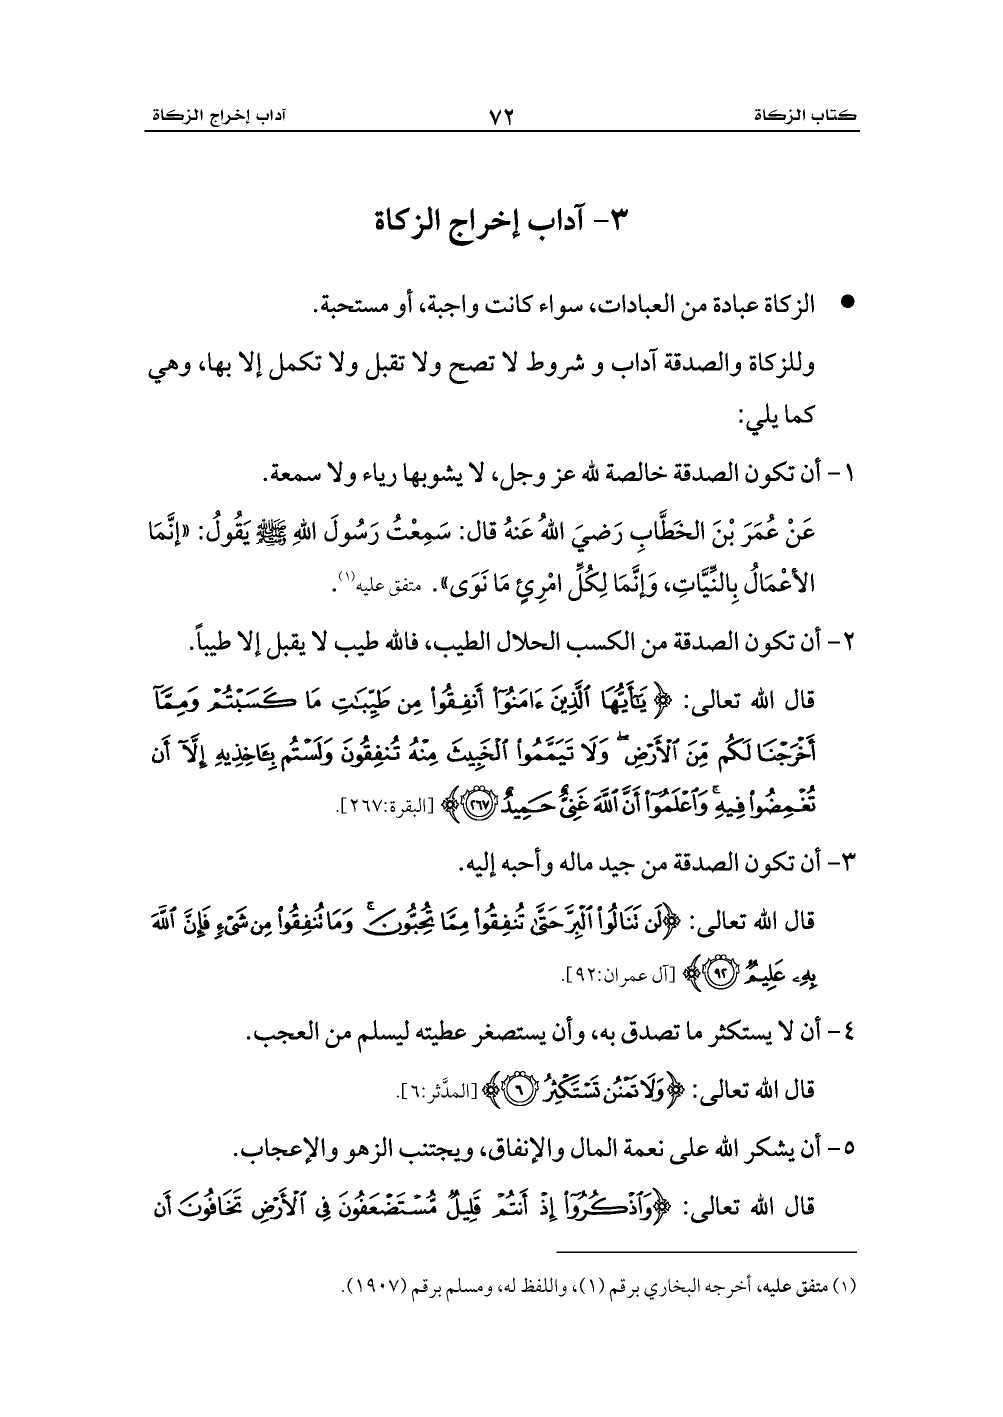 كتاب الزكاة ٧٢ آداب إخراج الزكاة
٣- آداب إخراج الزكاة
● الزكاة عبادة من العبادات، سواء كانت واجبة، أو مستحبة.
وللزكاة والصدقة آداب و شروط لا تصح ولا تقبل ولا تكمل إلا بها، وهي
كما يلي:
١- أن تكون الصدقة خالصة لله عز وجل، لا يشوبها رياء ولا سمعة.
عَنْ عُمَرَ بْنَ الخَطَّابِ رَضيَ اللهُ عَنهُ قال: سَمِعْتُ رَسُولَ اللهِ ﷺ يَقُولُ: «إنَّمَا
الأعْمَالُ بِالنِّيَّاتِ، وَإنَّمَا لِكُلِّ امْرِئٍ مَا نَوَى». متفق عليه(١).
٢- أن تكون الصدقة من الكسب الحلال الطيب، فالله طيب لا يقبل إلا طيباً.
قال الله تعالى: ﴿يَٰٓأَيُّهَا ٱلَّذِينَ ءَامَنُوٓاْ أَنفِقُواْ مِن طَيِّبَٰتِ مَا كَسَبۡتُمۡ وَمِمَّآ
أَخۡرَجۡنَا لَكُم مِّنَ ٱلۡأَرۡضِۖ وَلَا تَيَمَّمُواْ ٱلۡخَبِيثَ مِنۡهُ تُنفِقُونَ وَلَسۡتُم بِـَٔاخِذِيهِ إِلَّآ أَن
تُغۡمِضُواْ فِيهِۚ وَٱعۡلَمُوٓاْ أَنَّ ٱللَّهَ غَنِيٌّ حَمِيدٌ ٢٦٧﴾ [البقرة:٢٦٧].
٣- أن تكون الصدقة من جيد ماله وأحبه إليه.
قال الله تعالى: ﴿لَن تَنَالُواْ ٱلۡبِرَّ حَتَّىٰ تُنفِقُواْ مِمَّا تُحِبُّونَۚ وَمَا تُنفِقُواْ مِن شَيۡءٖ فَإِنَّ ٱللَّهَ
بِهِۦ عَلِيمٞ ٩٢﴾ [آل عمران:٩٢].
٤- أن لا يستكثر ما تصدق به، وأن يستصغر عطيته ليسلم من العجب.
قال الله تعالى: ﴿وَلَا تَمۡنُن تَسۡتَكۡثِرُ ٦﴾ [المدَّثر:٦].
٥- أن يشكر الله على نعمة المال والإنفاق، ويجتنب الزهو والإعجاب.
قال الله تعالى: ﴿وَٱذۡكُرُوٓاْ إِذۡ أَنتُمۡ قَلِيلٞ مُّسۡتَضۡعَفُونَ فِي ٱلۡأَرۡضِ تَخَافُونَ أَن
(١) متفق عليه، أخرجه البخاري برقم (١)، واللفظ له، ومسلم برقم (١٩٠٧).